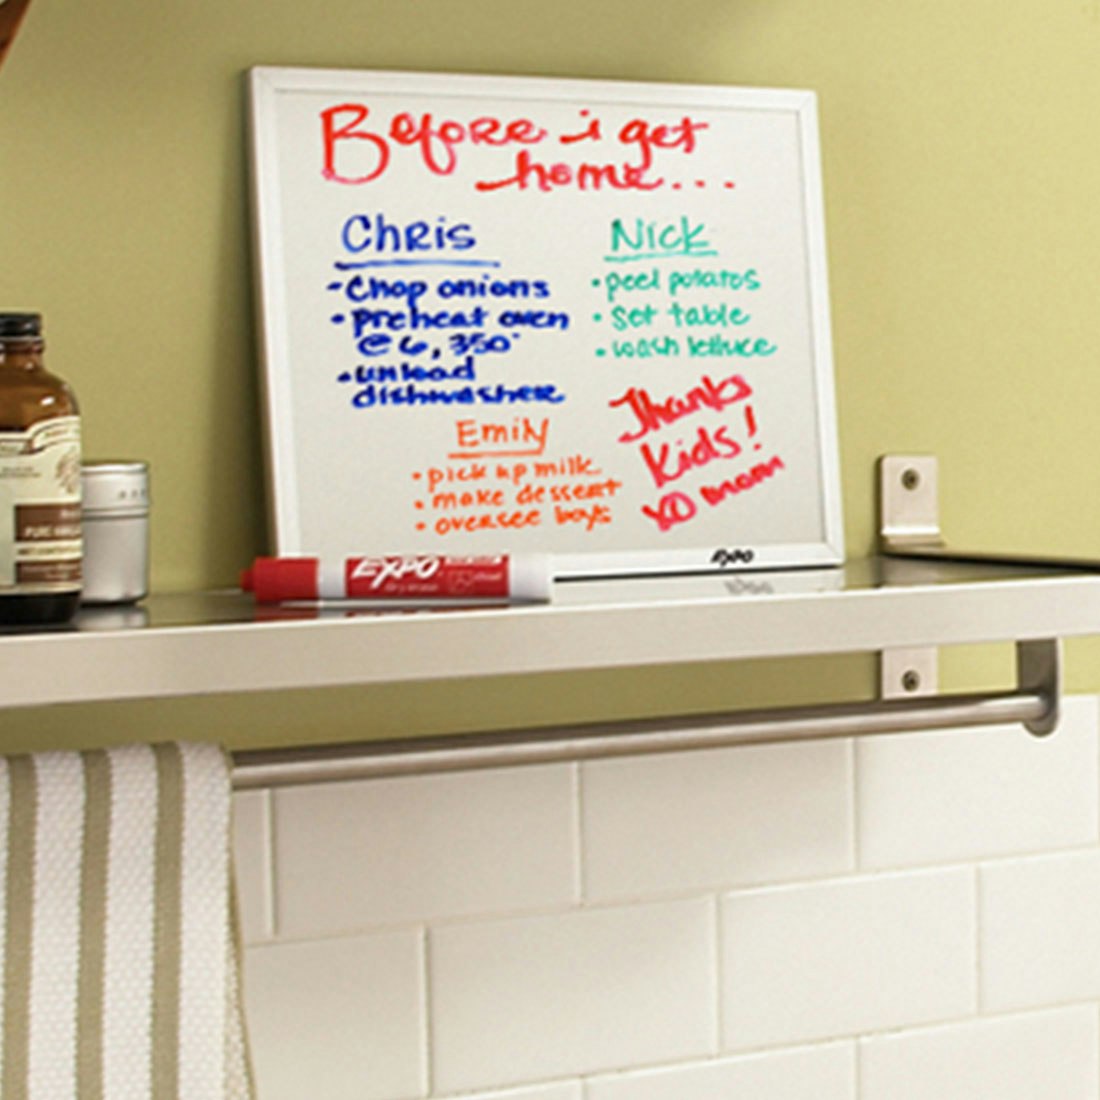 Before i get
home...
Chris
- Chop onions
• preheat oven
@ 6, 350°
• unload
dishwasher
Nick
• peel potatos
• set table
• wash lettuce
Emily
• pick up milk
• make dessert
• oversee boys
Thanks
Kids!
XO mom
EXPO
EXPO
dry erase
PURE